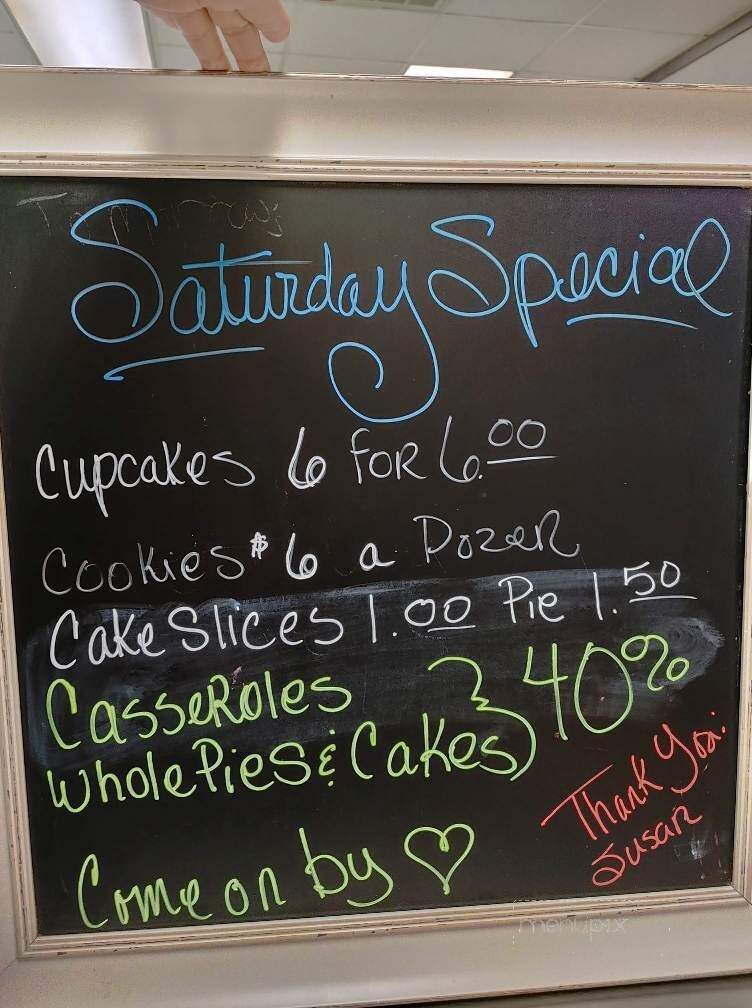 Tomorrow's
Saturday Special
Cupcakes 6 FOR 6.00
Cookies $6 a Dozen
Cake Slices 1.00 Pie 1.50
Casseroles
Whole Pies & Cakes } 40%
Thank You.
Susan
Come on by ♡
menupix